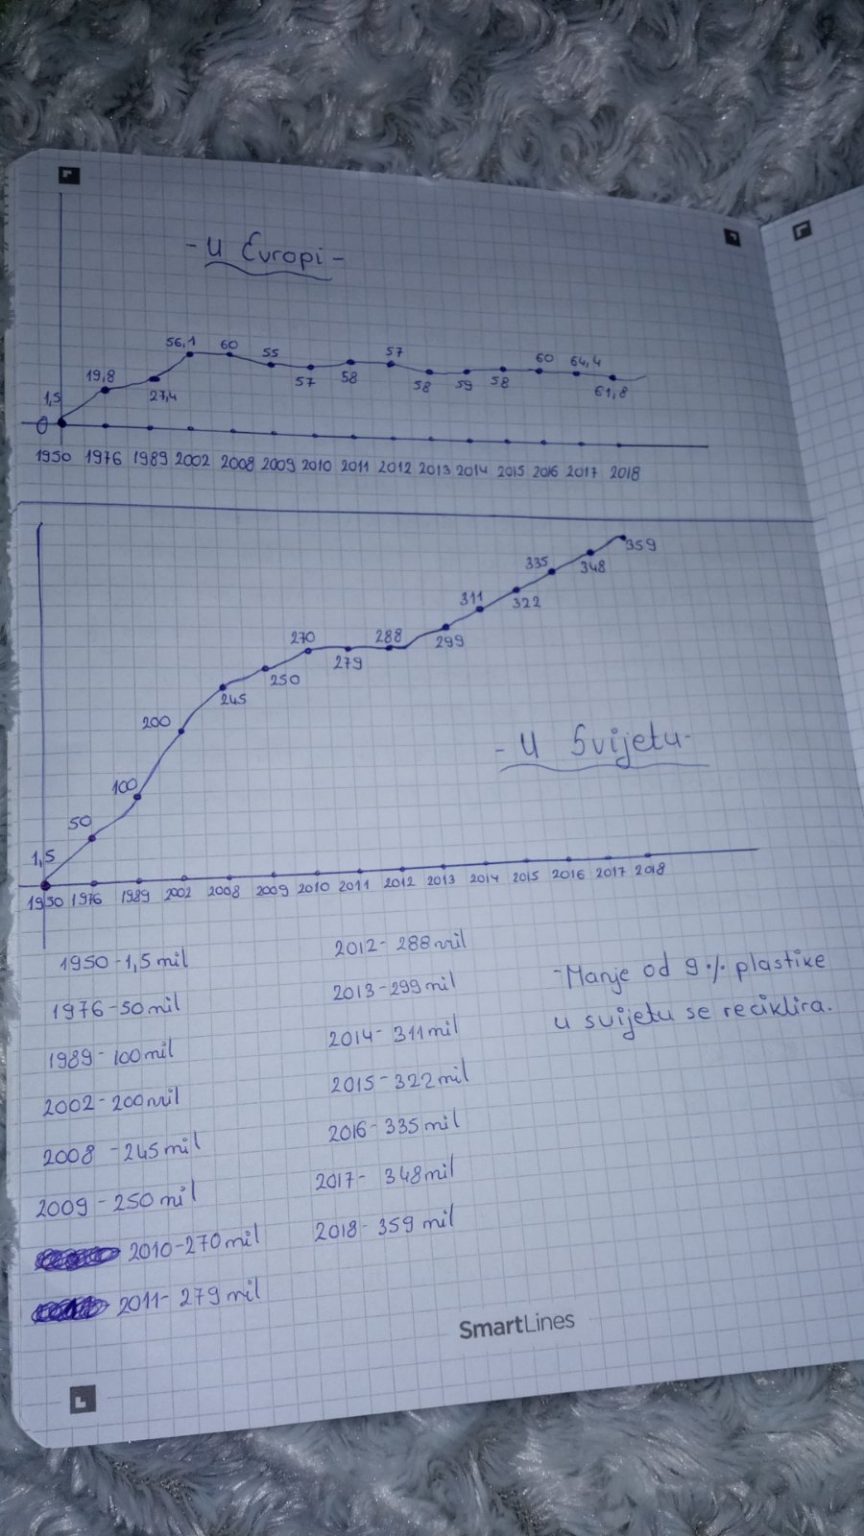 - U Evropi -
1,5 19,8 27,4 56,1 60 55 57 58 57 58 59 58 60 64,4 61,8
0
1950 1976 1989 2002 2008 2009 2010 2011 2012 2013 2014 2015 2016 2017 2018
1,5 50 100 200 245 250 270 279 288 299 311 322 335 348 359
- U Svijetu -
1950 1976 1989 2002 2008 2009 2010 2011 2012 2013 2014 2015 2016 2017 2018
1950 - 1,5 mil
1976 - 50 mil
1989 - 100 mil
2002 - 200 mil
2008 - 245 mil
2009 - 250 mil
2010 - 270 mil
2011 - 279 mil
2012 - 288 mil
2013 - 299 mil
2014 - 311 mil
2015 - 322 mil
2016 - 335 mil
2017 - 348 mil
2018 - 359 mil
- Manje od 9 % plastike
u svijetu se reciklira.
SmartLines